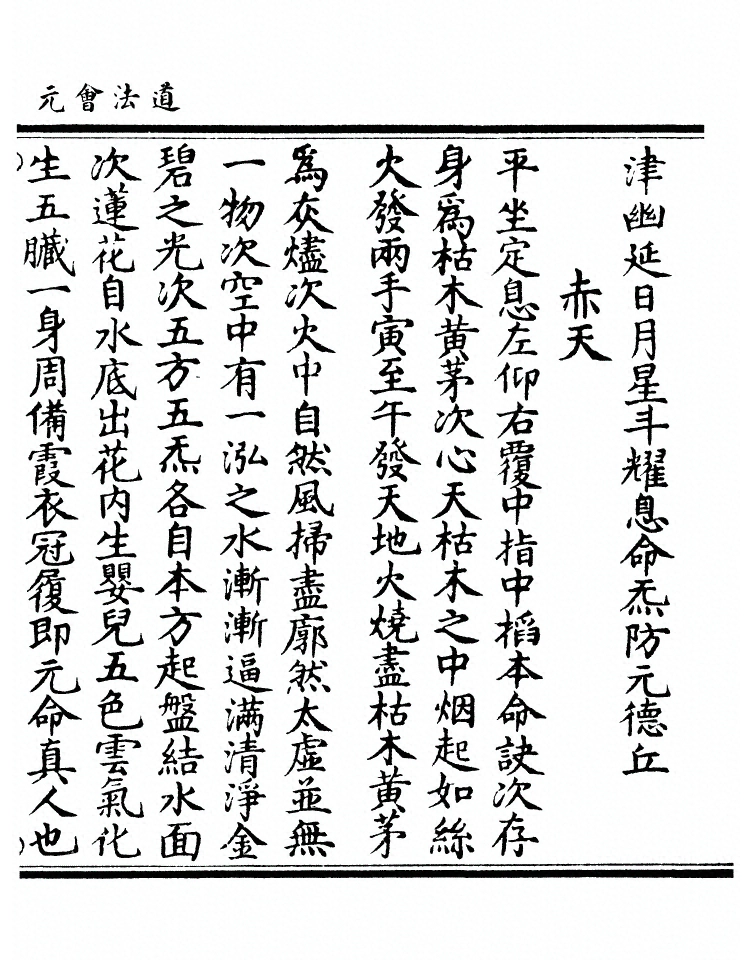 道法會元
津幽延日月星斗耀息命炁防元德丘
赤天
平坐定息左仰右覆中指中搯本命訣次存
身爲枯木黃茅次心天枯木之中烟起如絲
火發兩手寅至午發天地火燒盡枯木黃茅
爲灰燼次火中自然風掃盡廓然太虛並無
一物次空中有一泓之水漸漸逼滿清淨金
碧之光次五方五炁各自本方起盤結水面
次蓮花自水底出花內生嬰兒五色雲氣化
生五臟一身周備霞衣冠履即元命真人也